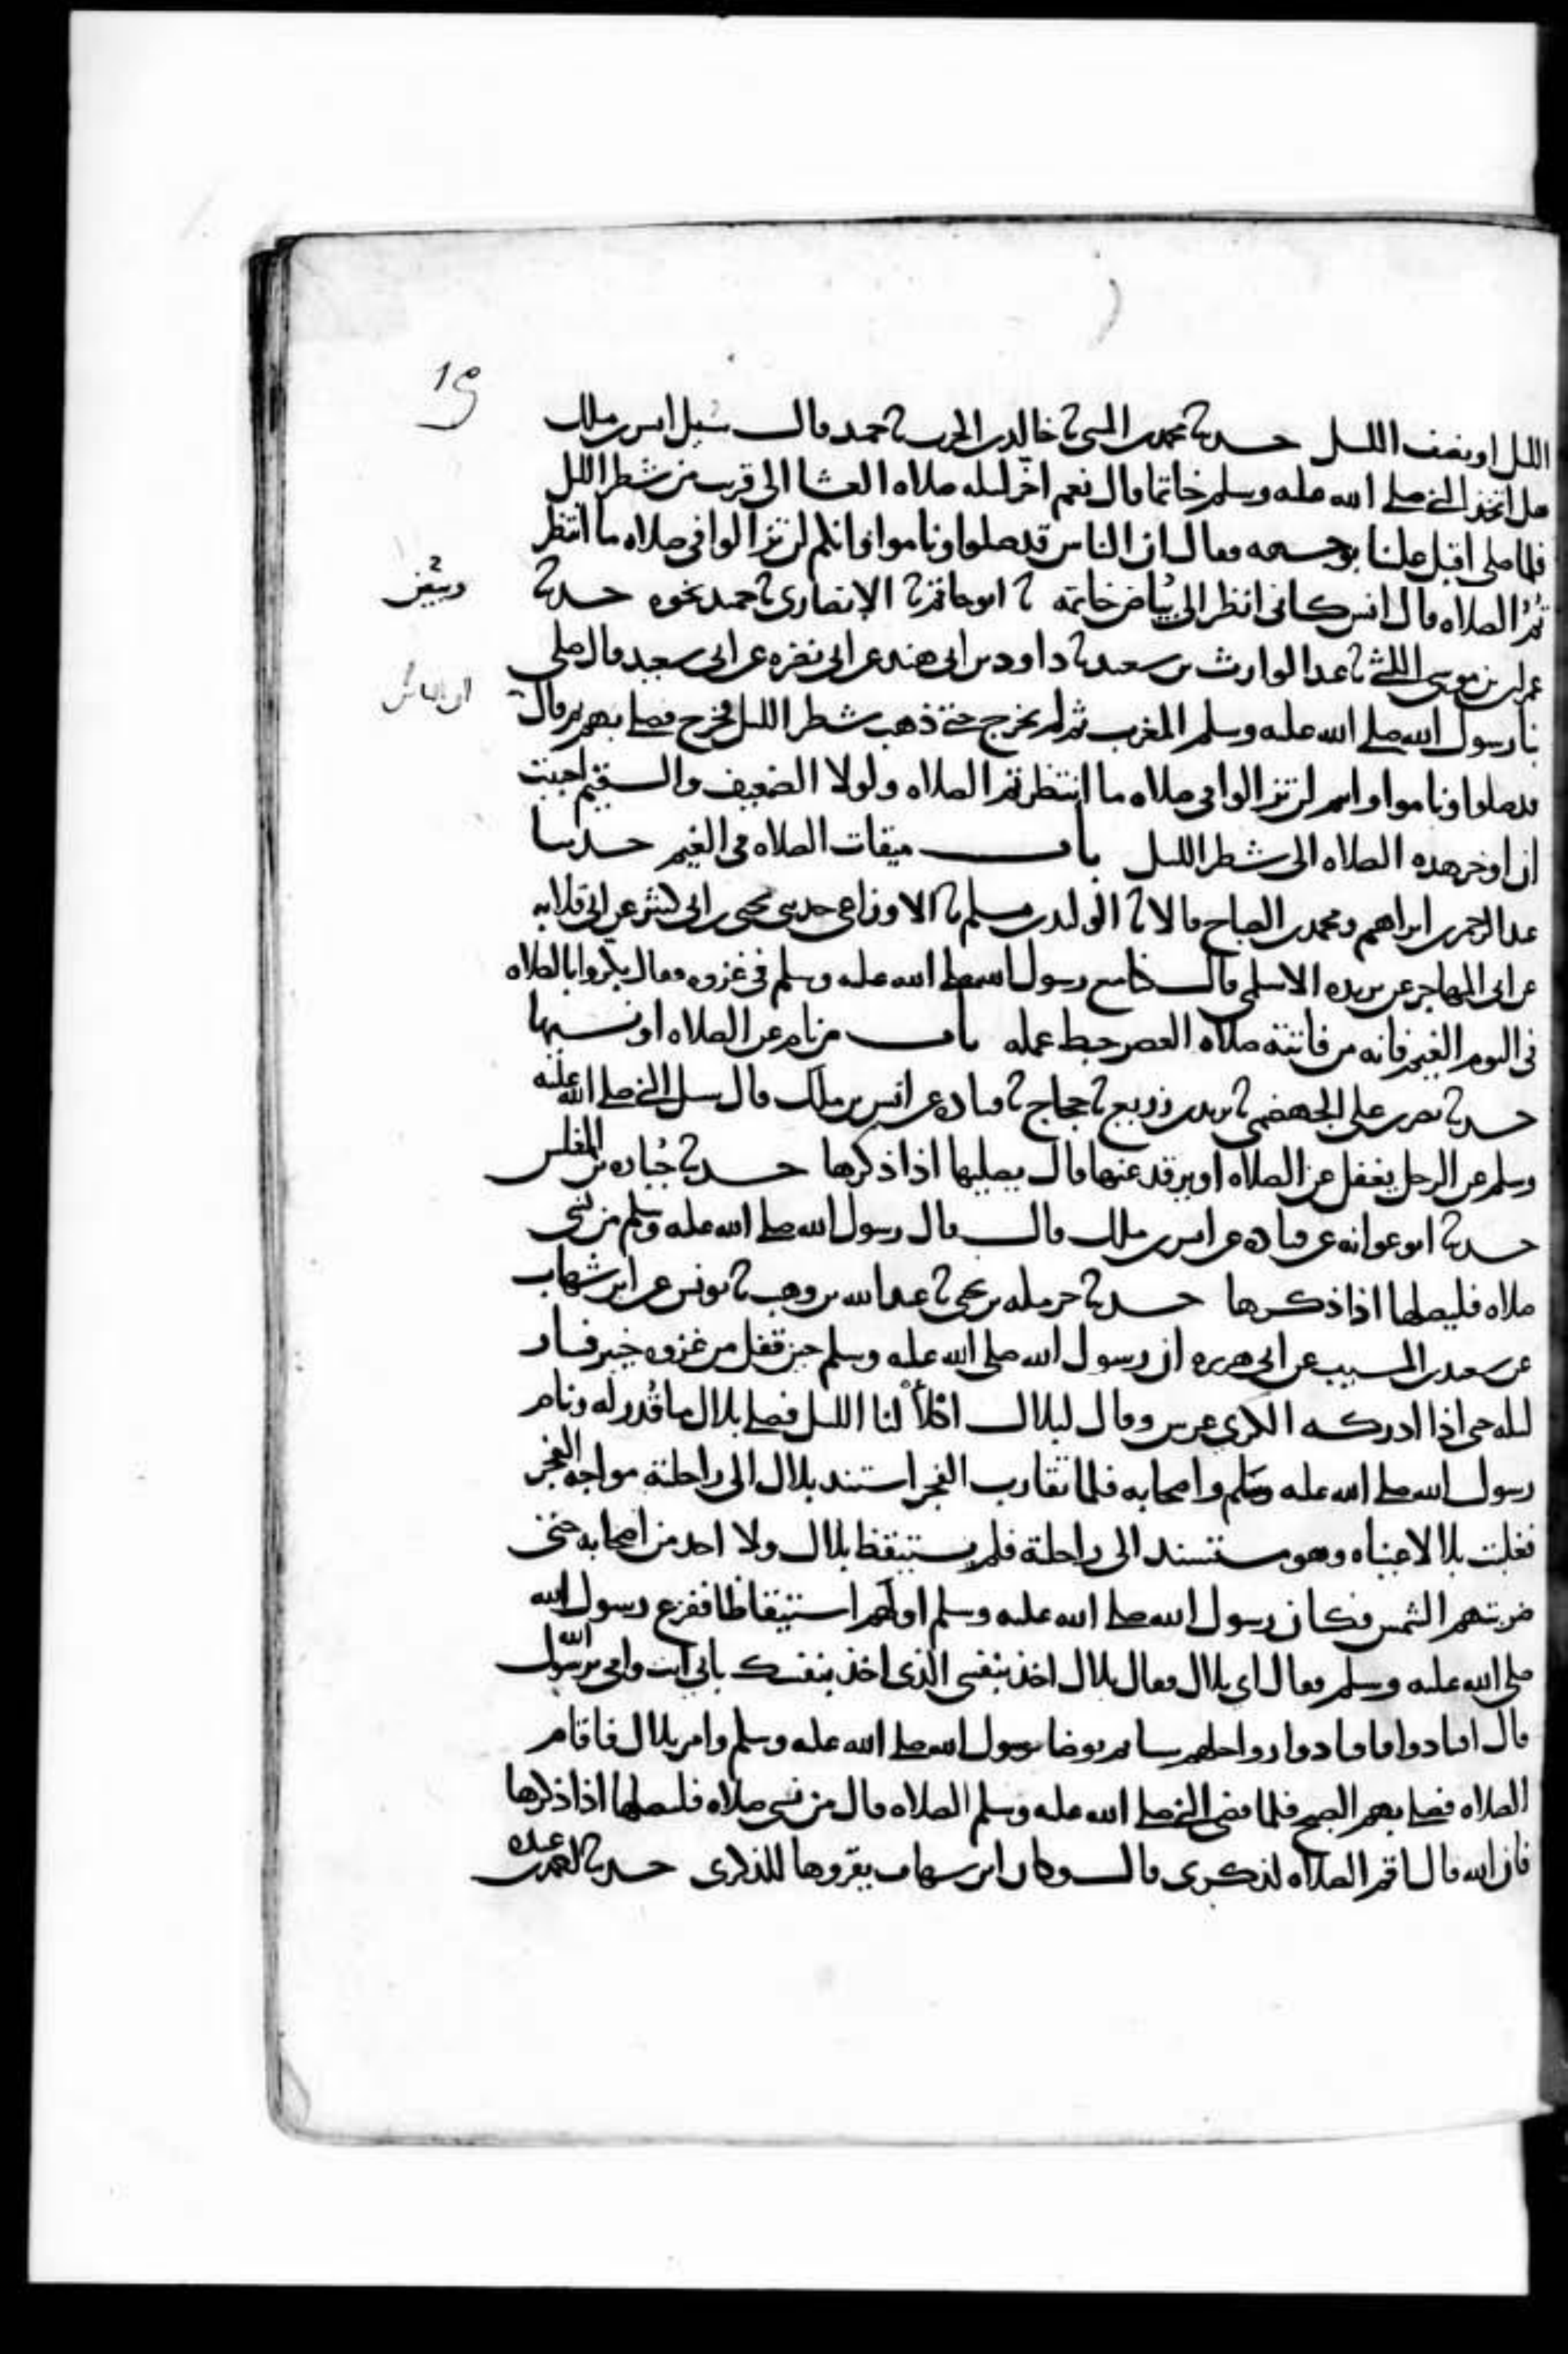 19
الليل او نصف الليل حدثنا محمد بن المثنى نا خالد بن الحرث نا حميد قال سئل انس بن ملك
هل اتخذ النبي صلى الله عليه وسلم خاتما قال نعم اخر ليله صلاه العشا الى قريب من شطر الليل
فلما صلى اقبل علينا بوجهه فقال ان الناس قد صلوا وناموا وانكم لن تزالوا في صلاه ما انتظر
تم الصلاه قال انس كاني انظر الى بياض خاتمه نا ابو حاتم نا الانصاري نا حميد نحوه حدثنا
عمران بن موسى الليثي نا عبد الوارث بن سعيد نا داود بن ابي هند عن ابي نضره عن ابي سعيد قال صلى
نا رسول الله صلى الله عليه وسلم المغرب ثم لم يخرج حتى ذهب شطر الليل فخرج فصلى بهم ثم قال
ان الناس
قد صلوا وناموا وانتم لن تزالوا في صلاه ما انتظرتم الصلاه ولولا الضعيف والسقيم احببت
ان اوخر هذه الصلاه الى شطر الليل باب ميقات الصلاه في الغيم حدثنا
عبد الرحمن بن ابراهيم ومحمد بن الصباح قالا نا الوليد بن مسلم نا الاوزاعي حدثني يحيى بن ابي كثير عن ابي قلابه
عن ابي المهاجر عن بريده الاسلمي قال كنا مع رسول الله صلى الله عليه وسلم في غزوه فقال بكروا بالصلاه
في اليوم الغيم فانه من فاتته صلاه العصر حبط عمله باب من نام عن الصلاه او نسيها
حدثنا نصر بن علي الجهضمي نا يزيد بن زريع نا حجاج نا قتاده عن انس بن ملك قال سئل النبي صلى الله عليه
وسلم عن الرجل يغفل عن الصلاه او يرقد عنها قال يصليها اذا ذكرها حدثنا جباره بن المغلس
حدثنا ابو عوانه عن قتاده عن انس بن ملك قال قال رسول الله صلى الله عليه وسلم من نسي
صلاه فليصلها اذا ذكرها حدثنا حرمله بن يحيى نا عبد الله بن وهب نا يونس عن ابن شهاب
عن سعيد بن المسيب عن ابي هريره ان رسول الله صلى الله عليه وسلم حين قفل من غزوه خيبر فسار
ليله حتى اذا ادركه الكرى عرس وقال لبلال اكلأ لنا الليل فصلى بلال ما قدر له ونام
رسول الله صلى الله عليه وسلم واصحابه فلما تقارب الفجر استند بلال الى راحلته مواجه الفجر
فغلبت بلالا عيناه وهو مستند الى راحلته فلم يستيقظ بلال ولا احد من اصحابه حتى
ضربتهم الشمس فكان رسول الله صلى الله عليه وسلم اولهم استيقاظا ففزع رسول الله
صلى الله عليه وسلم فقال اي بلال فقال بلال اخذ بنفسي الذي اخذ بنفسك بابي انت وامي يرسول الله
قال اقتادوا فاقتادوا رواحلهم شيا ثم توضا رسول الله صلى الله عليه وسلم وامر بلال فاقام
الصلاه فصلى بهم الصبح فلما قضى النبي صلى الله عليه وسلم الصلاه قال من نسي صلاه فليصلها اذا ذكرها
فان الله قال اقم الصلاه لذكري قال وكان ابن شهاب يقروها للذكرى حدثنا احمد بن عبده